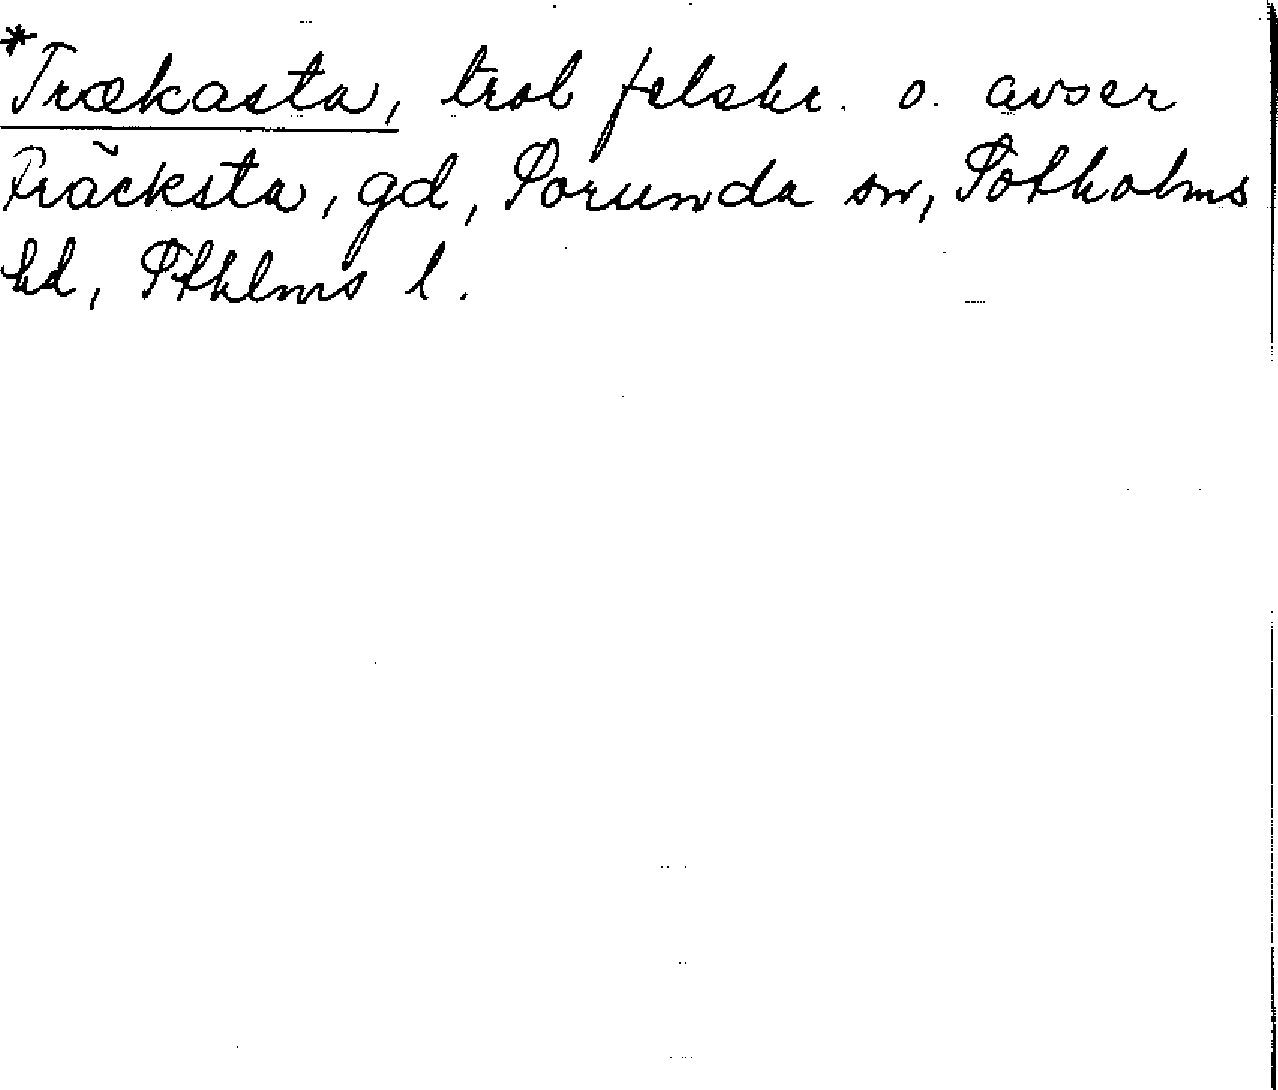 *Trækasta, trol felskr. o. avser
Fräcksta, gd, Sorunda sn, Sotholms
hd, Sthlms l.